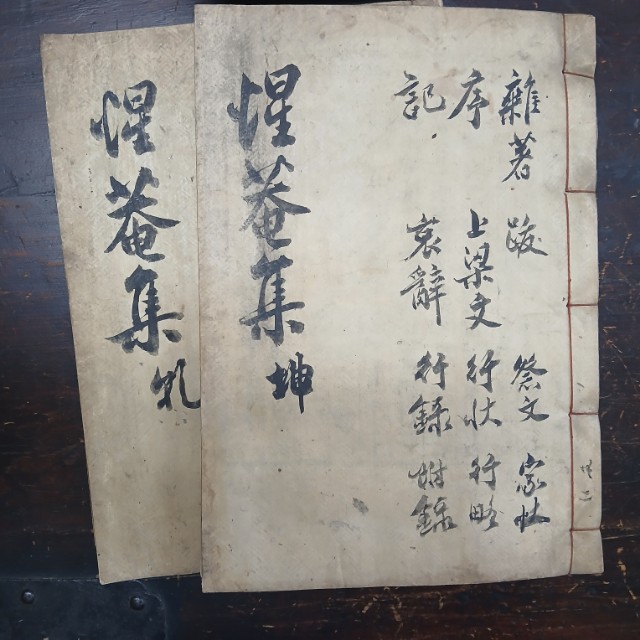 雜著 跋 祭文 家狀
序 上梁文 行狀 行略
記 哀辭 行錄 附錄
惺菴集 坤
共二
惺菴集 乾